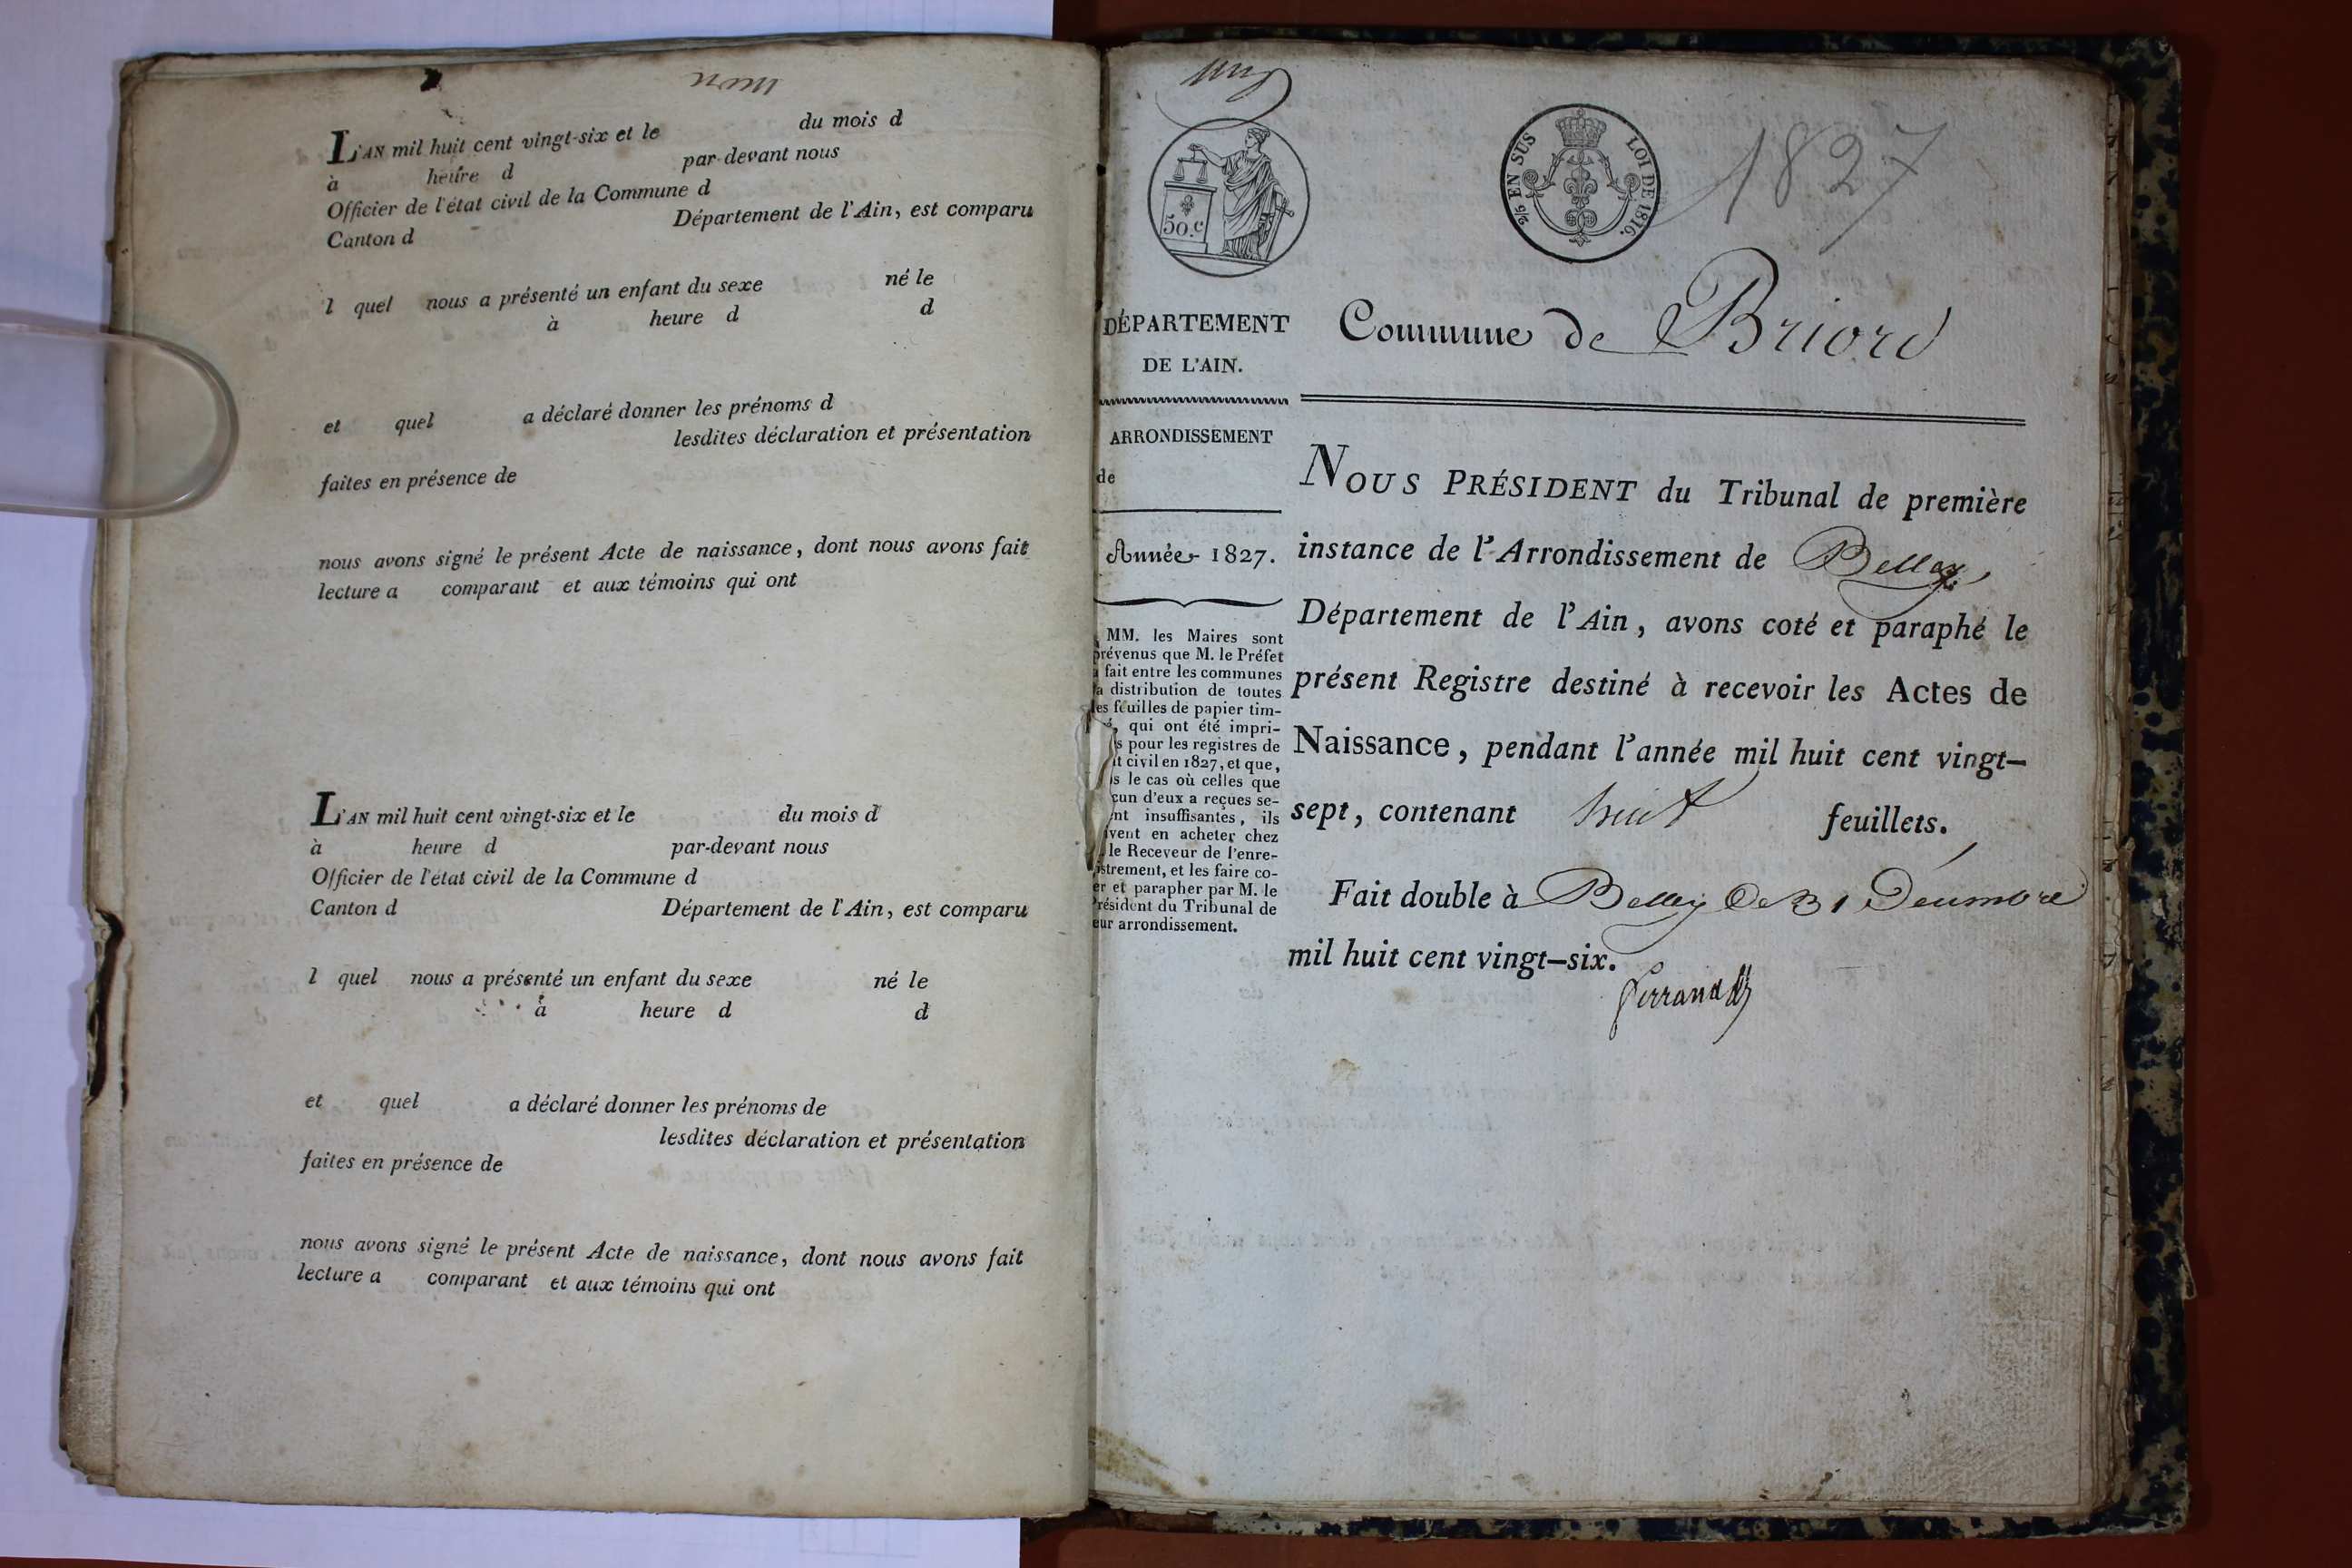 L'AN mil huit cent vingt-six et le du mois d
à heure d par-devant nous
Officier de l'état civil de la Commune d
Canton d Département de l'Ain, est comparu
l quel nous a présenté un enfant du sexe né le
à heure d d
et quel a déclaré donner les prénoms d
lesdites déclaration et présentation
faites en présence de
nous avons signé le présent Acte de naissance, dont nous avons fait
lecture a comparant et aux témoins qui ont
L'AN mil huit cent vingt-six et le du mois d
à heure d par-devant nous
Officier de l'état civil de la Commune d
Canton d Département de l'Ain, est comparu
l quel nous a présenté un enfant du sexe né le
à heure d d
et quel a déclaré donner les prénoms de
lesdites déclaration et présentation
faites en présence de
nous avons signé le présent Acte de naissance, dont nous avons fait
lecture a comparant et aux témoins qui ont
50.c
2/5 EN SUS LOI DE 1816.
1827
DÉPARTEMENT
DE L'AIN.
Commune de Briord
ARRONDISSEMENT
de
Année 1827.
MM. les Maires sont
prévenus que M. le Préfet
a fait entre les communes
la distribution de toutes
les feuilles de papier tim-
qui ont été impri-
s pour les registres de
t civil en 1827, et que,
s le cas où celles que
cun d'eux a reçues se-
nt insuffisantes, ils
ivent en acheter chez
le Receveur de l'enre-
istrement, et les faire co-
er et parapher par M. le
Président du Tribunal de
eur arrondissement.
NOUS PRÉSIDENT du Tribunal de première
instance de l'Arrondissement de Belley,
Département de l'Ain, avons coté et paraphé le
présent Registre destiné à recevoir les Actes de
Naissance, pendant l'année mil huit cent vingt-
sept, contenant huit feuillets.
Fait double à Belley le 31 Décembre
mil huit cent vingt-six.